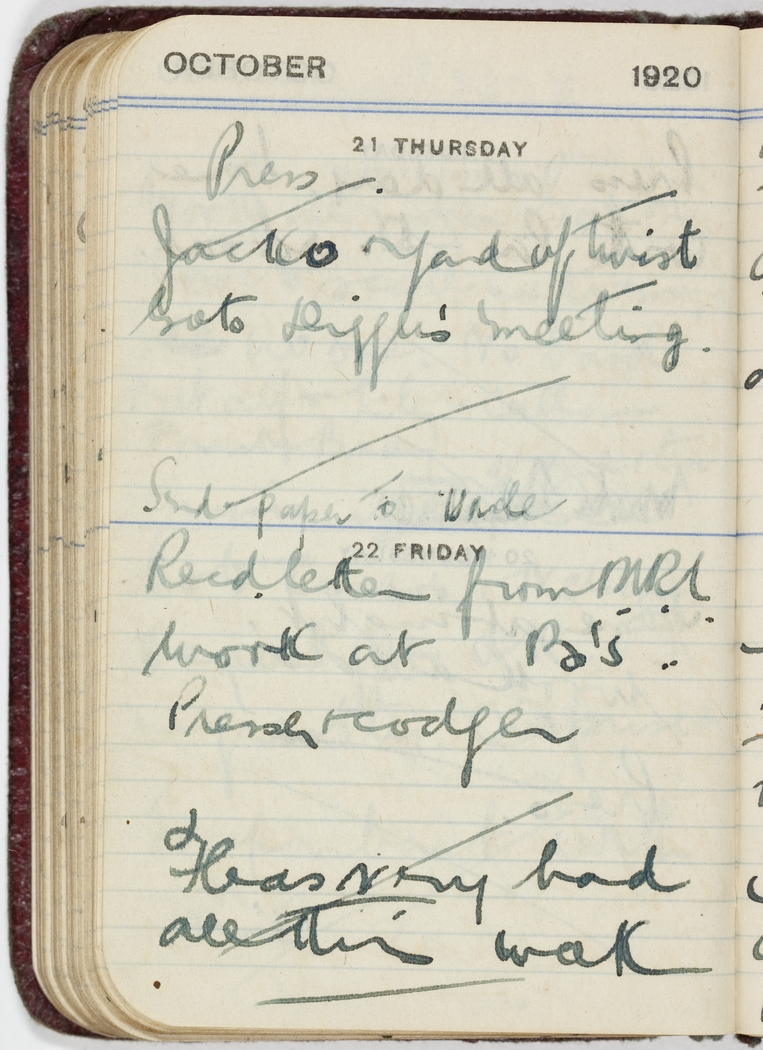 OCTOBER 1920
21 THURSDAY
Press.
Jacko Yard of twist
to meeting.
Send paper to Uncle
22 FRIDAY
Recd letter from
work at B's
Presser + codger
Fleas very bad
all this weak